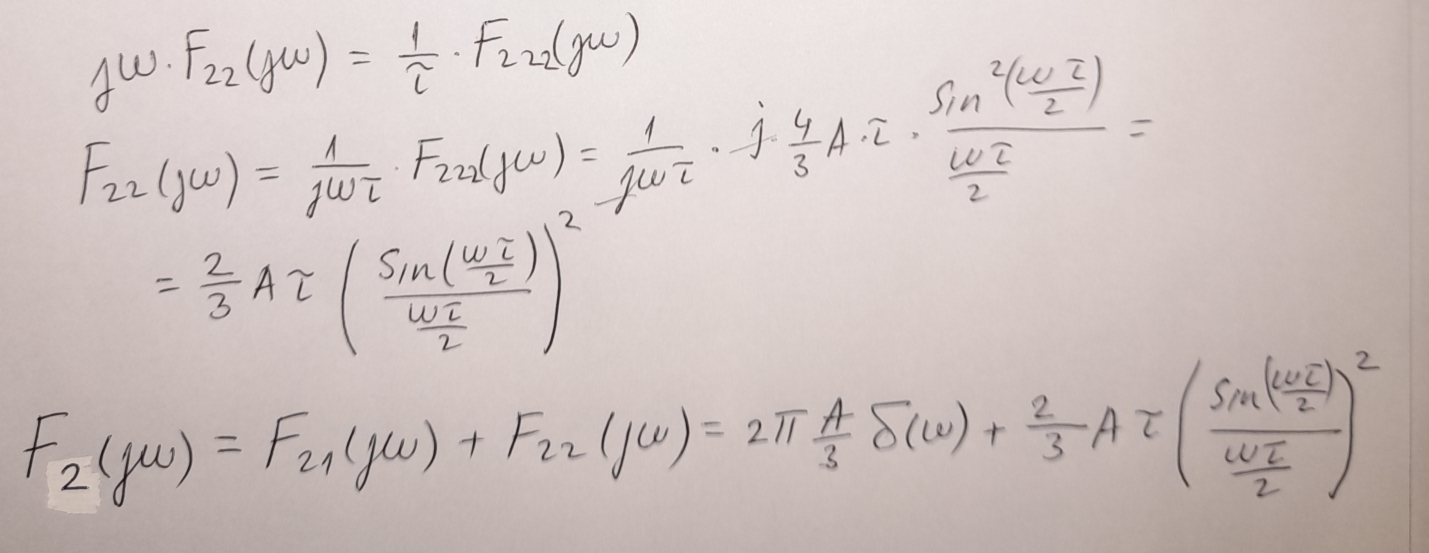 jω · F₂₂(jω) = 1/τ · F₂₂₂(jω)
F₂₂(jω) = 1/(jωτ) · F₂₂₂(jω) = 1/(jωτ) · j · 4/3 A · τ · sin²(ωτ/2)/(ωτ/2) =
= 2/3 A τ (sin(ωτ/2)/(ωτ/2))²
F₂(jω) = F₂₁(jω) + F₂₂(jω) = 2π A/3 δ(ω) + 2/3 A τ (sin(ωτ/2)/(ωτ/2))²